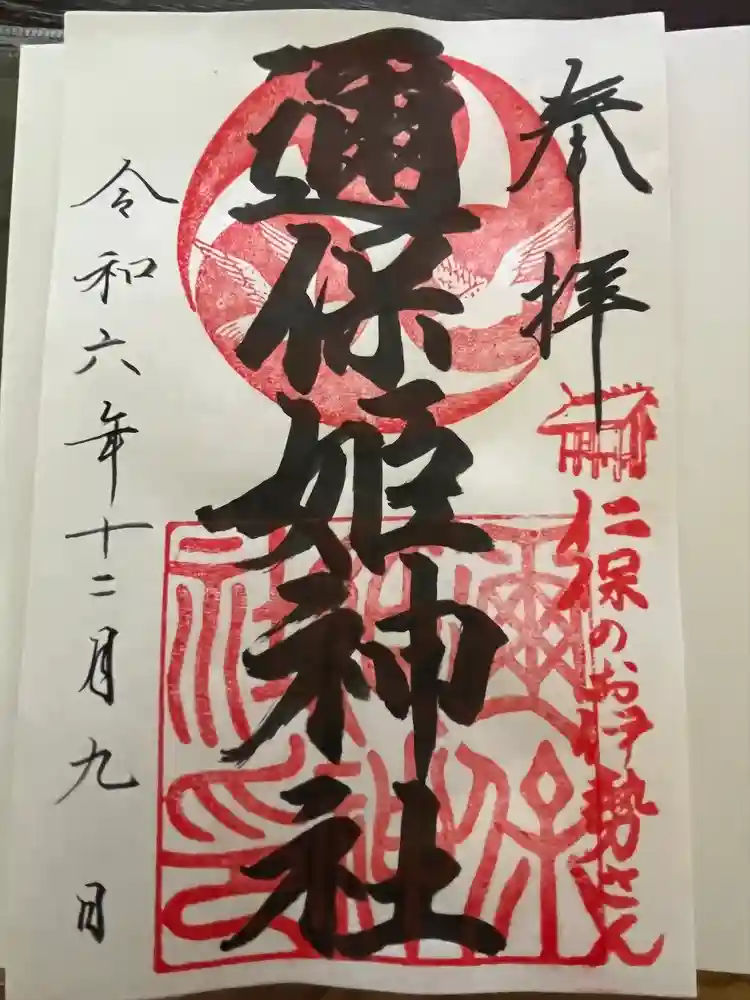 奉拝
仁保のお伊勢さん
邇保姫神社
令和六年十二月九日